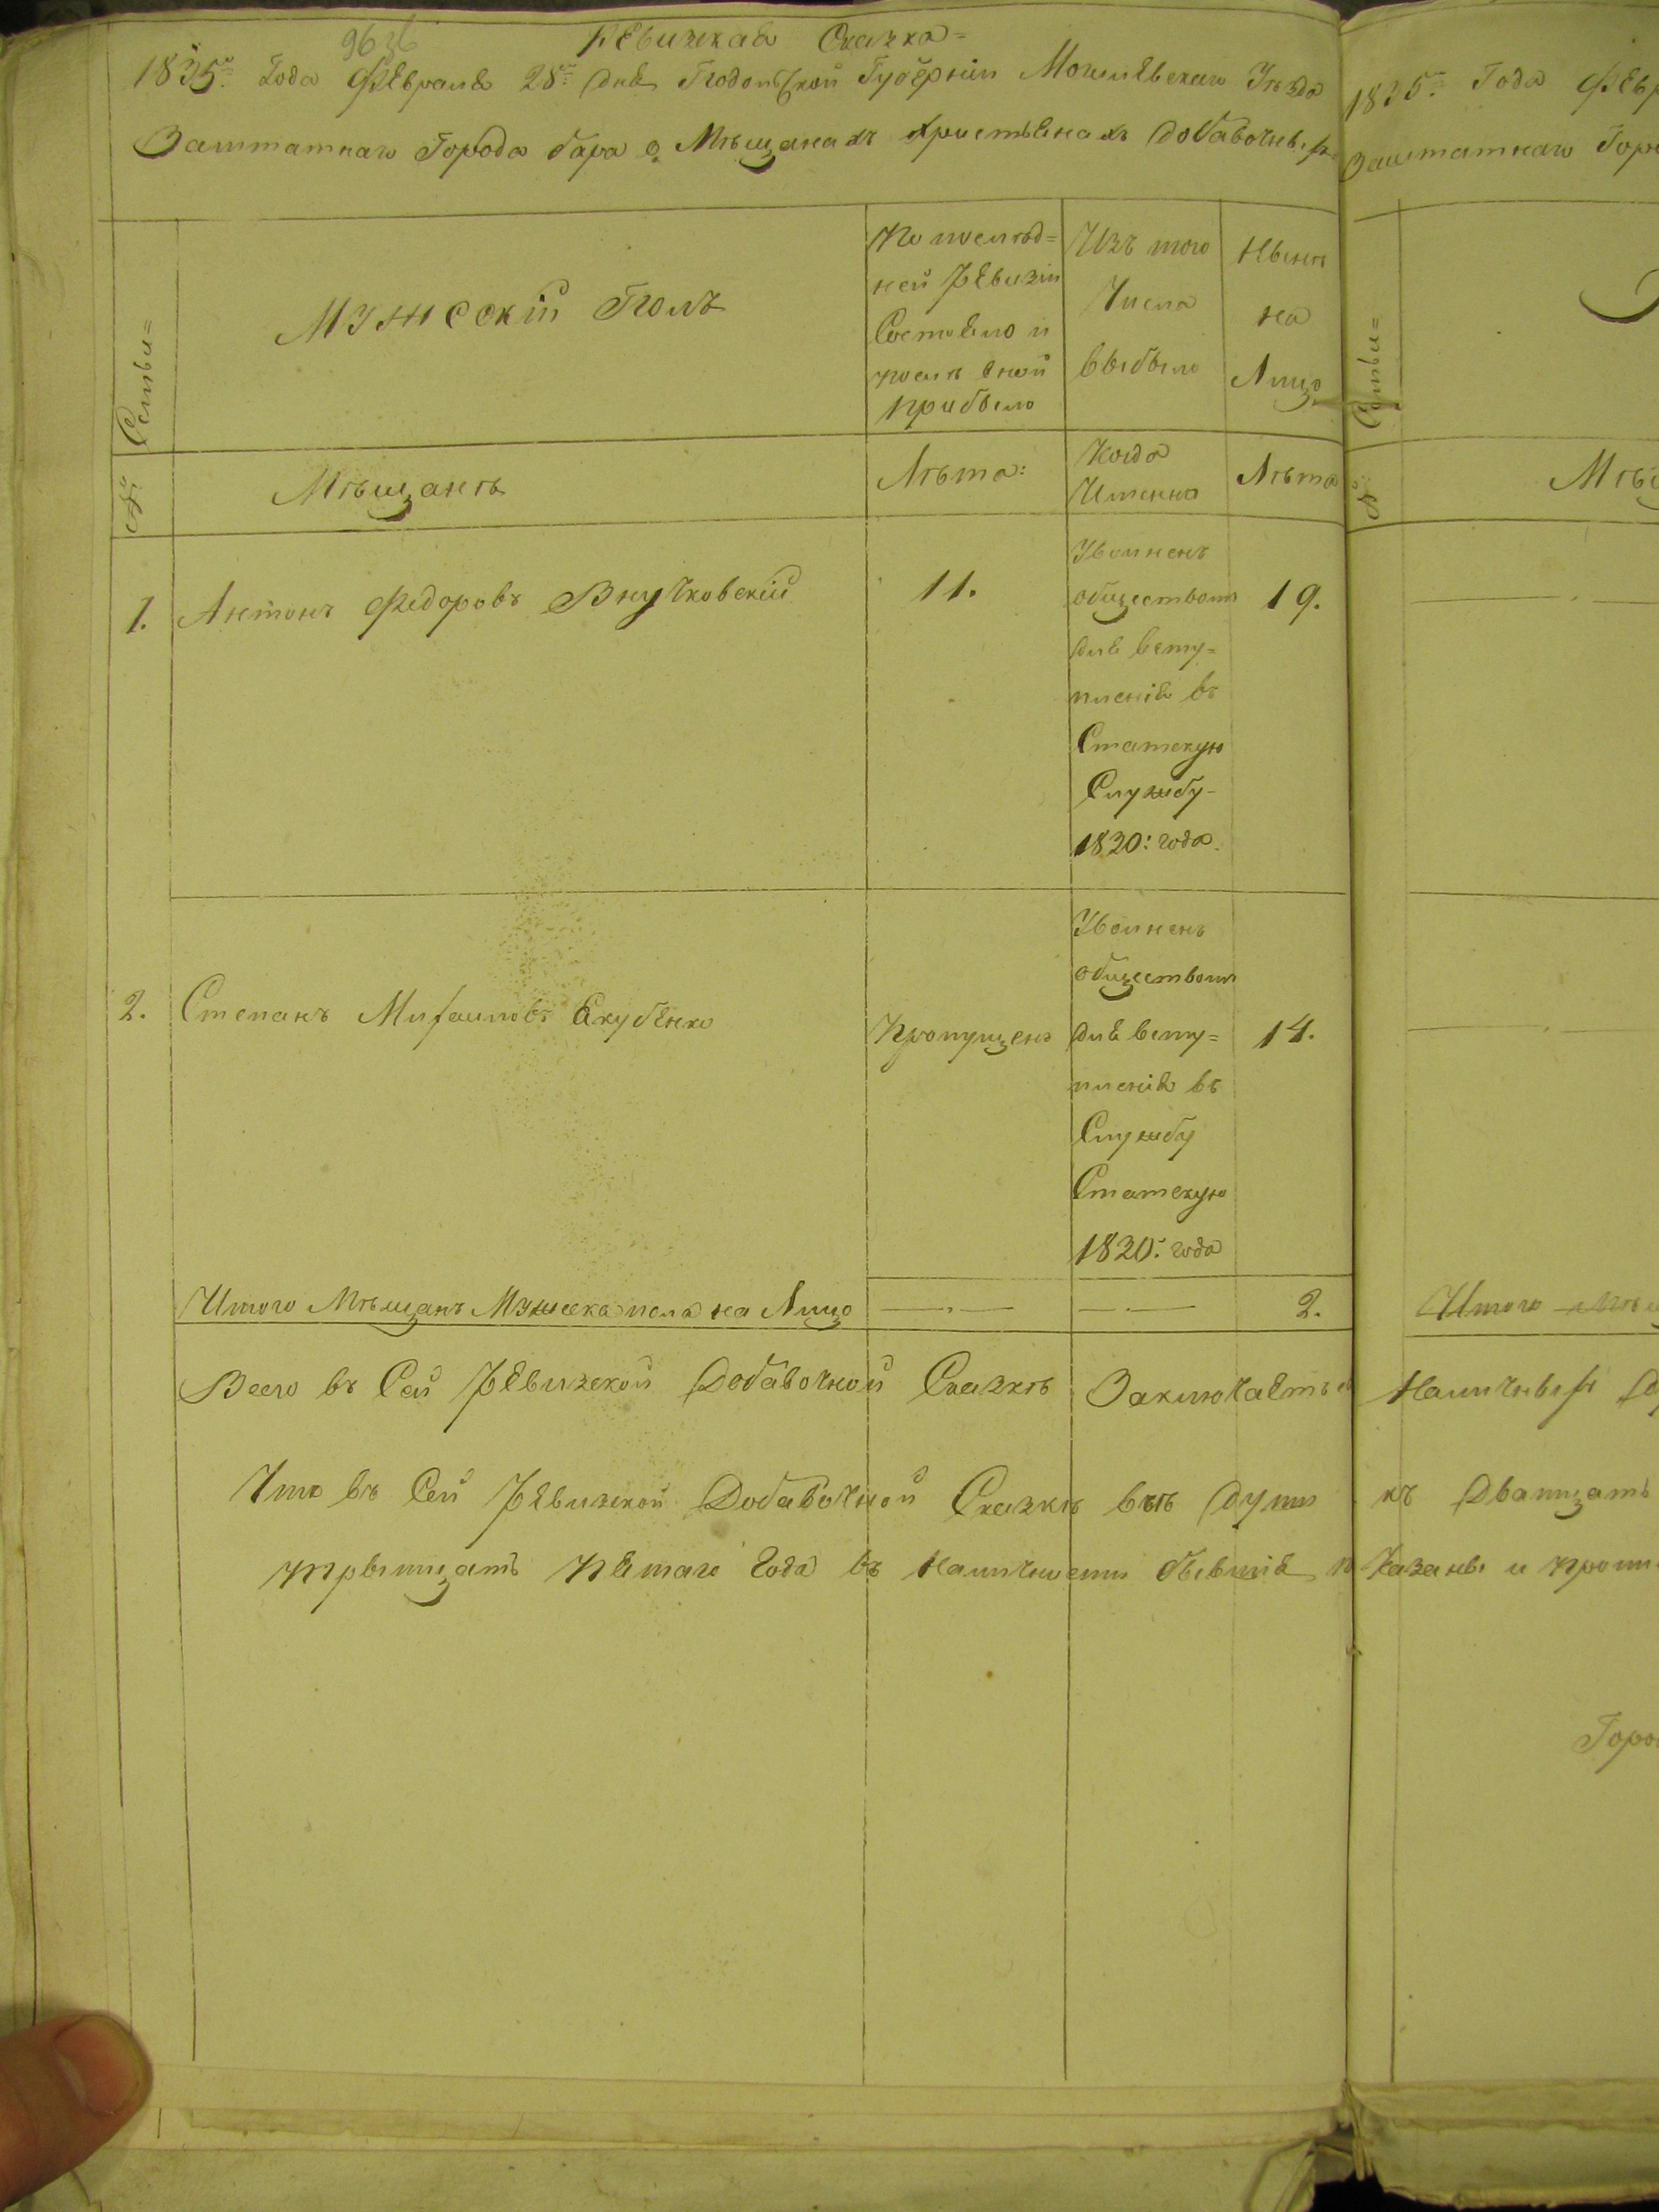 Ревизская Сказка=
1835го Года Февраля 28го дня Подольской Губерніи Могилевскаго Уѣзда
Заштатнаго Города бара о Мѣщанахъ христьянахъ добавочныхъ
№ Семьи=
Мужескій Полъ
По послѣд=
ней Ревизіи
Состояло и
послѣ оной
прибыло
Изъ того
Числа
выбыло
Нынѣ
на
Лицо
Мѣщанѣ
Лѣта:
Когда
Именно
Лѣта
1. Антонъ Федоровъ Внучковскій
11.
Уволненъ
обществомъ
для всту=
пленія въ
Статскую
Службу-
1830: года.
19.
2. Степанъ Михаиловъ Якубенко
Пропущенъ
Уволненъ
обществомъ
для всту=
пленія въ
Службу
Статскую
1830: года
14.
Итого Мѣщанъ Мужеска пола на Лицо
2.
Всего въ Сей Ревизской Добавочной Сказкѣ Заключается
Что въ Сей Ревизской Добавочной Сказкѣ всѣ души
трытцать Пятаго Года въ Наличности бывшія
1835го Года Февр
Заштатнаго Горо
Семьи=
№
Мѣщ
Итого Мѣщ
Наличныхъ
къ Дватцать
казаны и
Горо